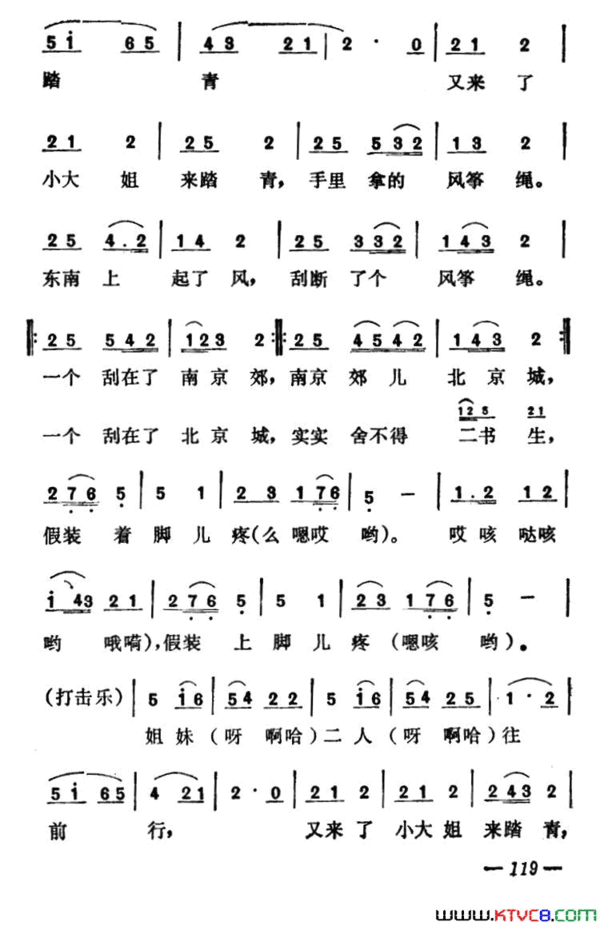 5i 65 | 43 21 | 2 · 0 | 21 2 |
踏 青 又来 了
21 2 | 25 2 | 25 532 | 13 2 |
小大 姐 来踏 青，手里 拿的 风筝 绳。
25 4.2 | 14 2 | 25 332 | 143 2 |
东南 上 起了 风，刮断 了个 风筝 绳。
‖: 25 542 | 123 2 :‖: 25 4542 | 143 2 :‖
一个 刮在了 南京 郊，南京 郊儿 北京 城，
123 21
一个 刮在了 北京 城，实实 舍不得 二书 生，
276 5 | 5 1 | 23 176 | 5 － | 1.2 12 |
假装 着 脚 儿 疼(么 嗯哎 哟)。 哎咳 哒咳
i 43 21 | 276 5 | 5 1 | 23 176 | 5 － |
哟 哦嗬)，假装 上 脚 儿 疼 (嗯咳 哟)。
(打击乐) | 5 i6 | 54 22 | 5 i6 | 54 25 | 1 · 2 |
姐 妹 (呀 啊哈) 二 人 (呀 啊哈) 往
5i 65 | 4 21 | 2 · 0 | 21 2 | 21 2 | 243 2 |
前 行， 又来 了 小大 姐 来踏 青，
— 119 —
www.KTVC8.com